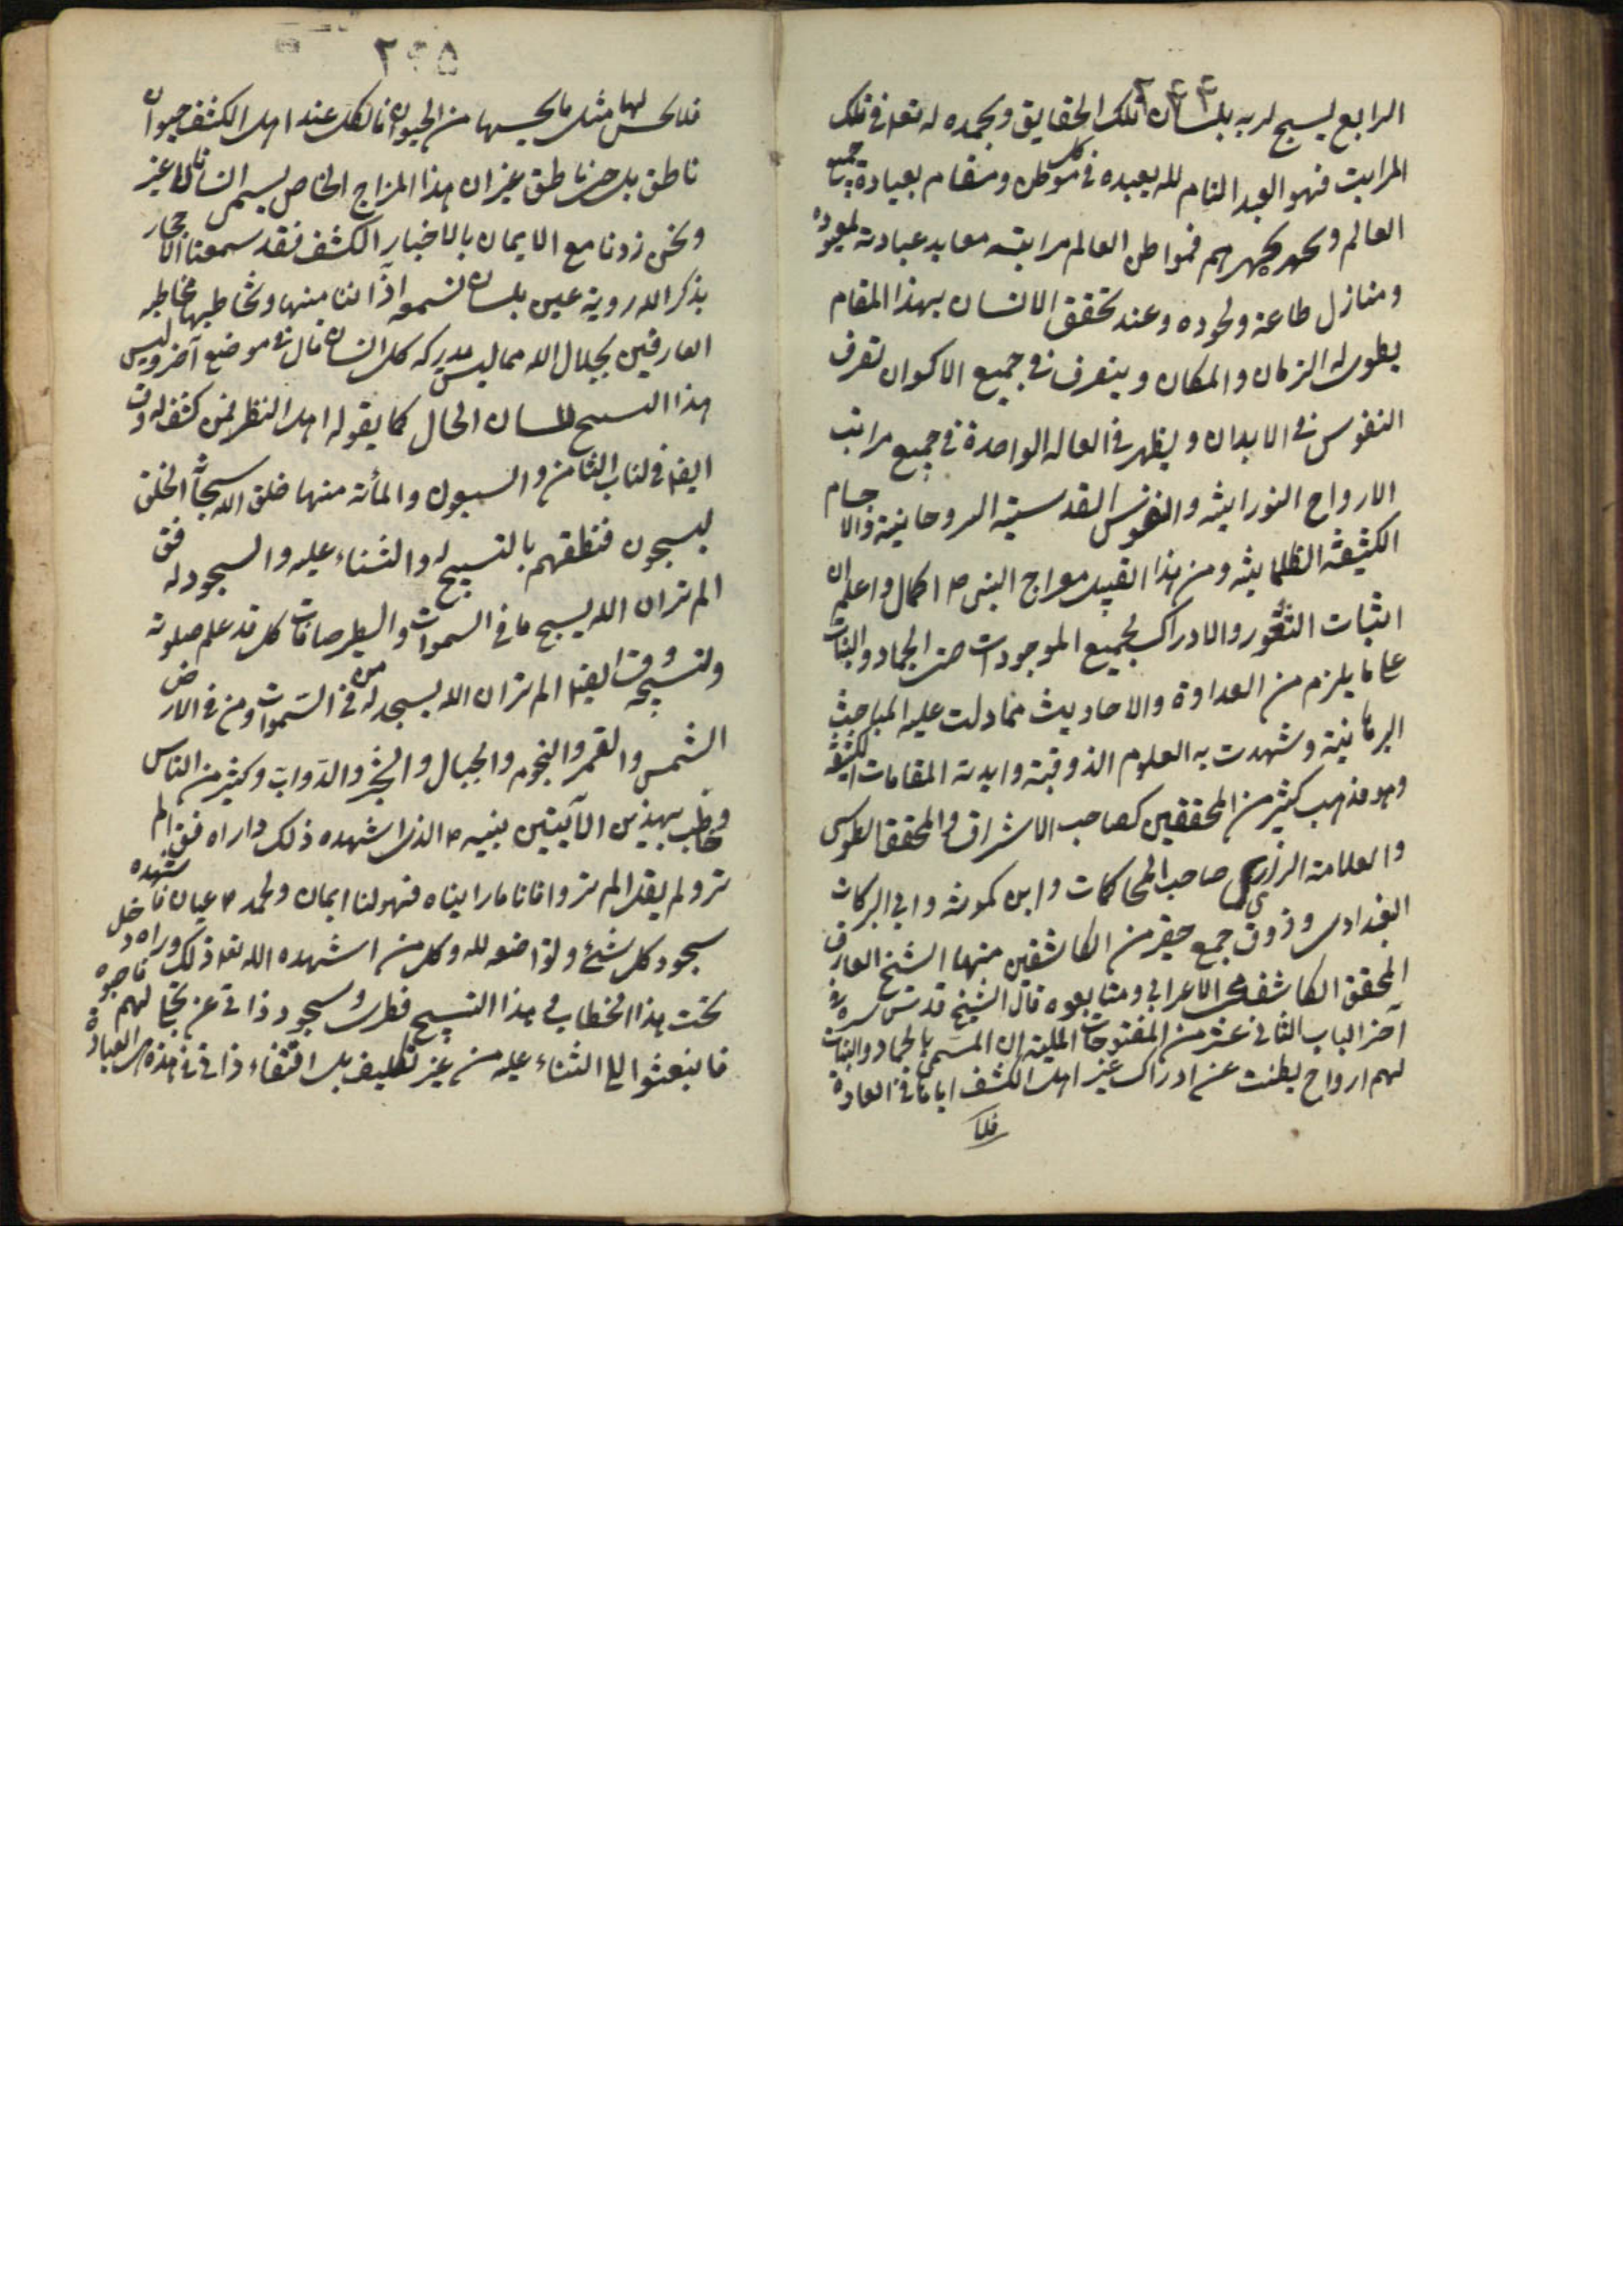 ٢٤٤
الرابع يسبح لربه بلسان تلك الحقايق وبحمده له تعه فى تلك
المراتب فهو العبد التام لله يعبده فى كل موطن ومقام بعبادة جميع
العالم ويحمد بحمدهم فمواطن العالم مراتبه معابد عبادته لمعبوده
ومنازل طاعة وجوده وعند تحقق الانسان بهذا المقام
يطوى له الزمان والمكان ويتصرف فى جميع الاكوان تصرف
النفوس فى الابدان ويظهر فى الحالة الواحدة فى جميع مراتب
الارواح النورانية والنفوس القدسية الروحانية والاجسام
الكثيفة الظلمانية ومن هذا القبيل معراج النبى ص اكمال واعلم ان
اثبات الشعور والادراك لجميع الموجودات حتى الجماد والنبات
على ما يلزم من العداوة والاحاديث مما دلت عليه المباحث
البرهانية وشهدت به العلوم الذوقية وايدته المقامات الكشفية
وهو مذهب كثير من المحققين كصاحب الاشراق والمحقق الطوسى
والعلامة الرازى صاحب المحاكمات وابن كمونة وابى البركات
البغدادى وذوق جمع حقر من الكاشفين منها الشيخ العارف
المحقق الكاشف محى الاعرابى ومتابعوه قال الشيخ قدس سره فى
آخر الباب الثانى عشر من الفتوحات المكية ان المسمى بالجماد والنبات
لهم ارواح بطنت عن ادراك غير اهل الكشف اياها فى العادة
فلا
٢٤٥
فلا يحس لها مثل ما يحسها من الحيوان فالكل عند اهل الكشف حيوان
ناطق بل حى ناطق غير ان هذا المزاج الخاص يسمى انسانا لا غير
ونحن زدنا مع الايمان بالاخبار الكشف فقد سمعنا الاحجار
يذكر الله رؤية عين بلسان تسمعه اذاننا منها وتخاطبها مخاطبة
العارفين بجلال الله مما ليس يدركه كل انسان قال فى موضع آخر وليس
هذا التسبيح بلسان الحال كما يقوله اهل النظر ممن لا كشف له وقت
ايضا فى الباب الثامن والسبعون والمأته منها خلق الله سبحانه الخلق
ليسبحون فنطقهم بالتسبيح له والثناء عليه والسجود له فق
الم تر ان الله يسبح ما فى السموات والطير صافات كل قد علم صلوته
وتسبيحه وقت ايضا الم تر ان الله يسجد له من فى السموات ومن فى الارض
الشمس والقمر والنجوم والجبال والشجر والدواب وكثير من الناس
وخاطب بهذين الآيتين نبيه ص الذى اشهده ذلك واراه فق الم
تر ولم يقل الم تروا فانا ما رايناه فهو لنا ايمان ولمحمد ص عيان فاشهده
سجود كل شئ وتواضعه لله وكل من اشهده الله تعه ذلك وراه دخل
تحت هذا الخطاب فى هذا التسبيح فطرى وسجود ذاتى عن تجلى لهم فاحبوه
فانبعثوا الى الثناء عليه من غير تكليف بل اقتضاء ذاتى فى هذه هى العبادة